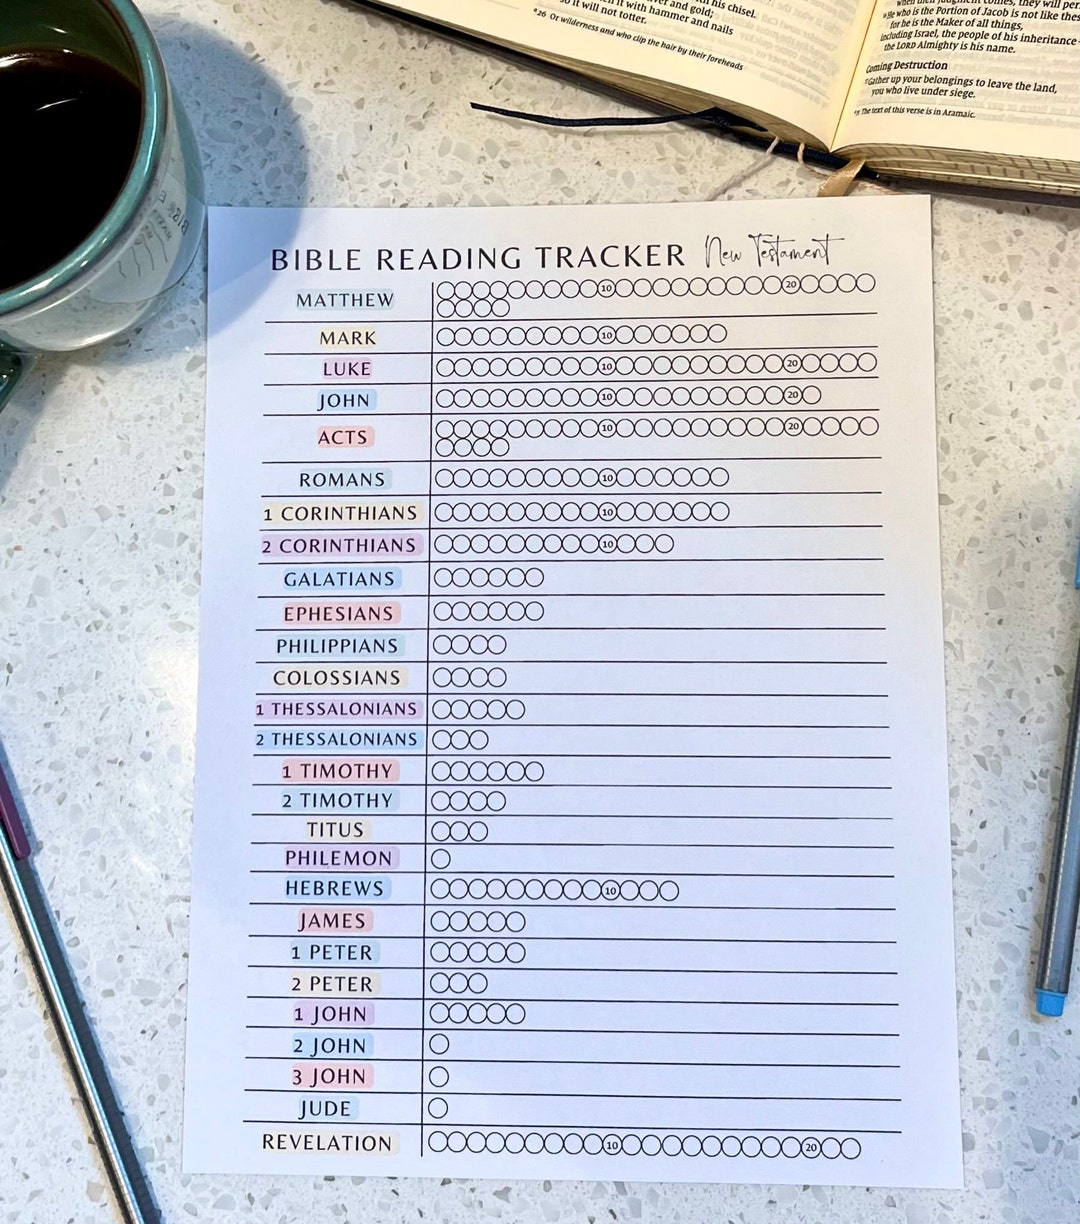 his chisel.
ver and gold;
it with hammer and nails
so it will not totter.
*26 Or wilderness and who clip the hair by their foreheads
who is the Portion of Jacob is not like these
for he is the Maker of all things,
including Israel, the people of his inheritance
the LORD Almighty is his name.
Coming Destruction
Gather up your belongings to leave the land,
you who live under siege.
The text of this verse is in Aramaic.
BIBLE READING TRACKER New Testament
MATTHEW 10 20
MARK 10
LUKE 10 20
JOHN 10 20
ACTS 10 20
ROMANS 10
1 CORINTHIANS 10
2 CORINTHIANS 10
GALATIANS
EPHESIANS
PHILIPPIANS
COLOSSIANS
1 THESSALONIANS
2 THESSALONIANS
1 TIMOTHY
2 TIMOTHY
TITUS
PHILEMON
HEBREWS 10
JAMES
1 PETER
2 PETER
1 JOHN
2 JOHN
3 JOHN
JUDE
REVELATION 10 20